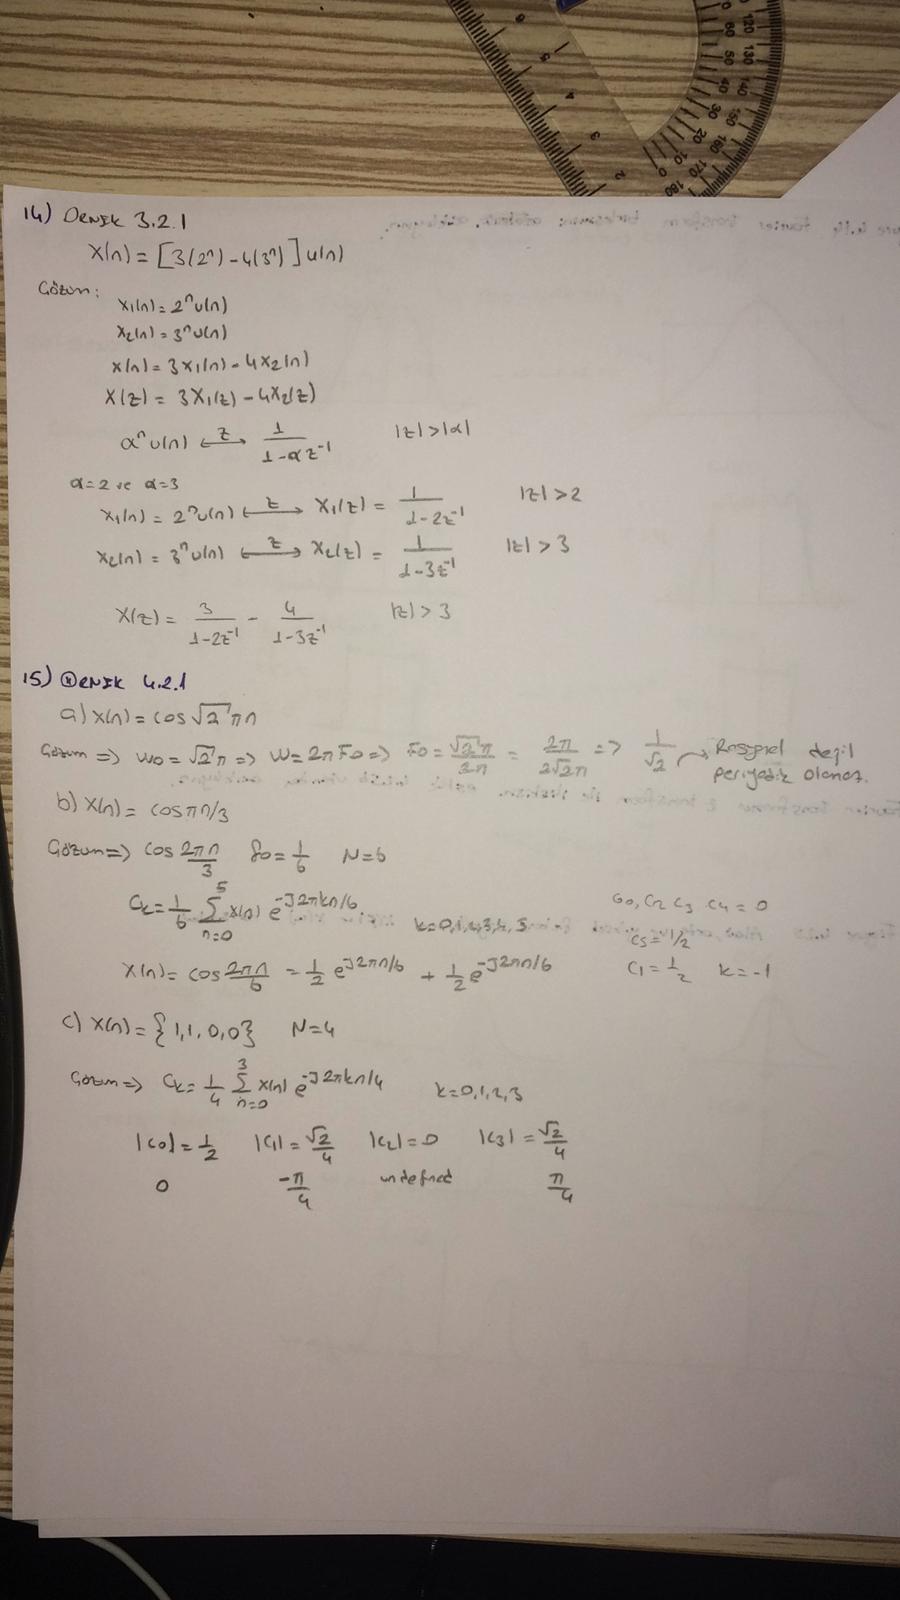 14) ÖRNEK 3.2.1
x(n) = [3(2ⁿ) - 4(3ⁿ)] u(n)
Çözüm:
x₁(n) = 2ⁿu(n)
x₂(n) = 3ⁿu(n)
x(n) = 3x₁(n) - 4x₂(n)
X(z) = 3X₁(z) - 4X₂(z)
αⁿu(n) ←z→ 1/(1-αz⁻¹) |z|>|α|
α=2 ve α=3
x₁(n) = 2ⁿu(n) ←z→ X₁(z) = 1/(1-2z⁻¹) |z|>2
x₂(n) = 3ⁿu(n) ←z→ X₂(z) = 1/(1-3z⁻¹) |z|>3
X(z) = 3/(1-2z⁻¹) - 4/(1-3z⁻¹) |z|>3
15) ÖRNEK 4.2.1
a) x(n) = cos√2πn
Çözüm => w₀ = √2π => w = 2πF₀ => F₀ = √2π/2π = 2π/2√2π => 1/√2 → Rasyonel değil
periyodik olamaz.
b) x(n) = cosπn/3
Çözüm => cos 2πn/3 f₀ = 1/6 N=6
Cₖ = 1/6 5∑n=0 x(n) e^-J2πkn/6 k=0,1,2,3,4,5 C₀, C₂ C₃ C₄ = 0
C₅ = 1/2
x(n) = cos 2πn/6 = 1/2 e^J2πn/6 + 1/2 e^-J2πn/6 C₁ = 1/2 k = -1
c) x(n) = {1,1,0,0} N=4
Çözüm => Cₖ = 1/4 3∑n=0 x(n) e^-J2πkn/4 k=0,1,2,3
|C₀| = 1/2 |C₁| = √2/4 |C₂| = 0 |C₃| = √2/4
0 -π/4 undefined π/4